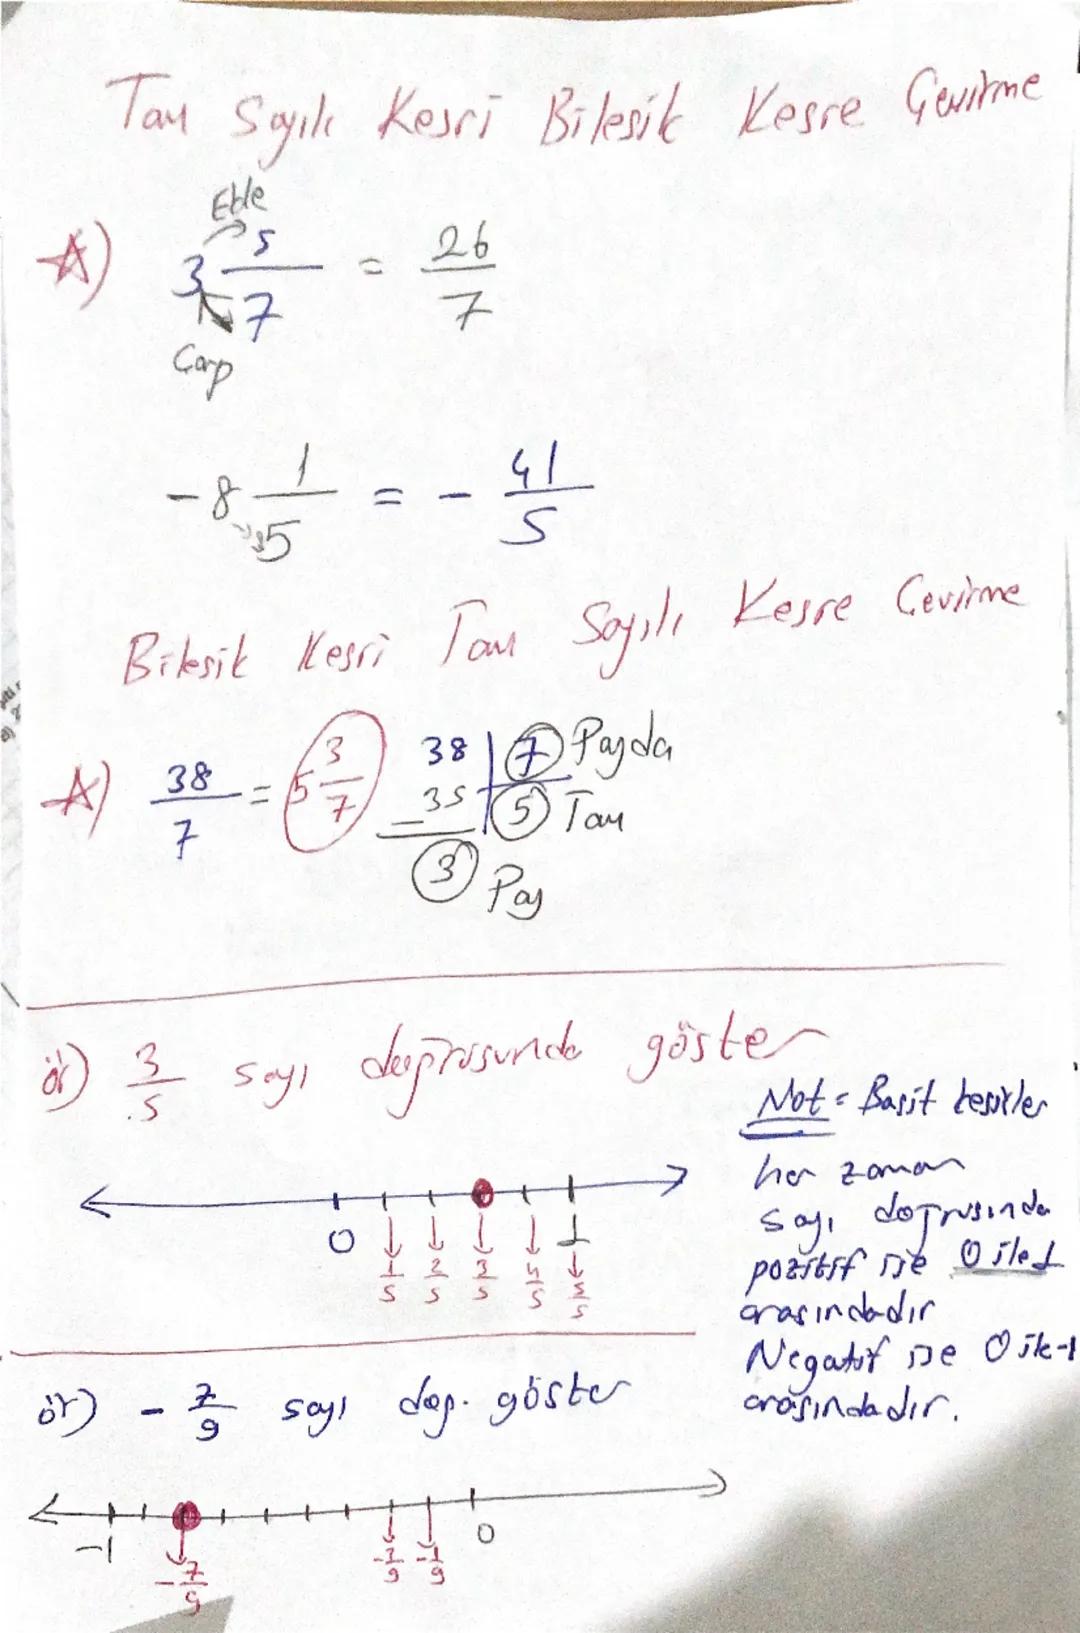 Tam Sayılı Kesri Bileşik Kesre Çevirme
Ekle
A) 3 5/7 = 26/7
Çarp
-8 1/5 = - 41/5
Bileşik Kesri Tam Sayılı Kesre Çevirme
A) 38/7 = 5 3/7 38 | 7 Payda
- 35 5 Tam
3 Pay
ör) 3/5 sayı doğrusunda göster
Not = Basit kesirler
her zaman
sayı doğrusında
pozitif ise 0 ile 1
arasındadır
Negatif ise 0 ile -1
arasındadır.
0 1
1/5 2/5 3/5 4/5 5/5
ör) - 7/9 sayı doğ. göster
-1 0
-7/9 -2/9 -1/9